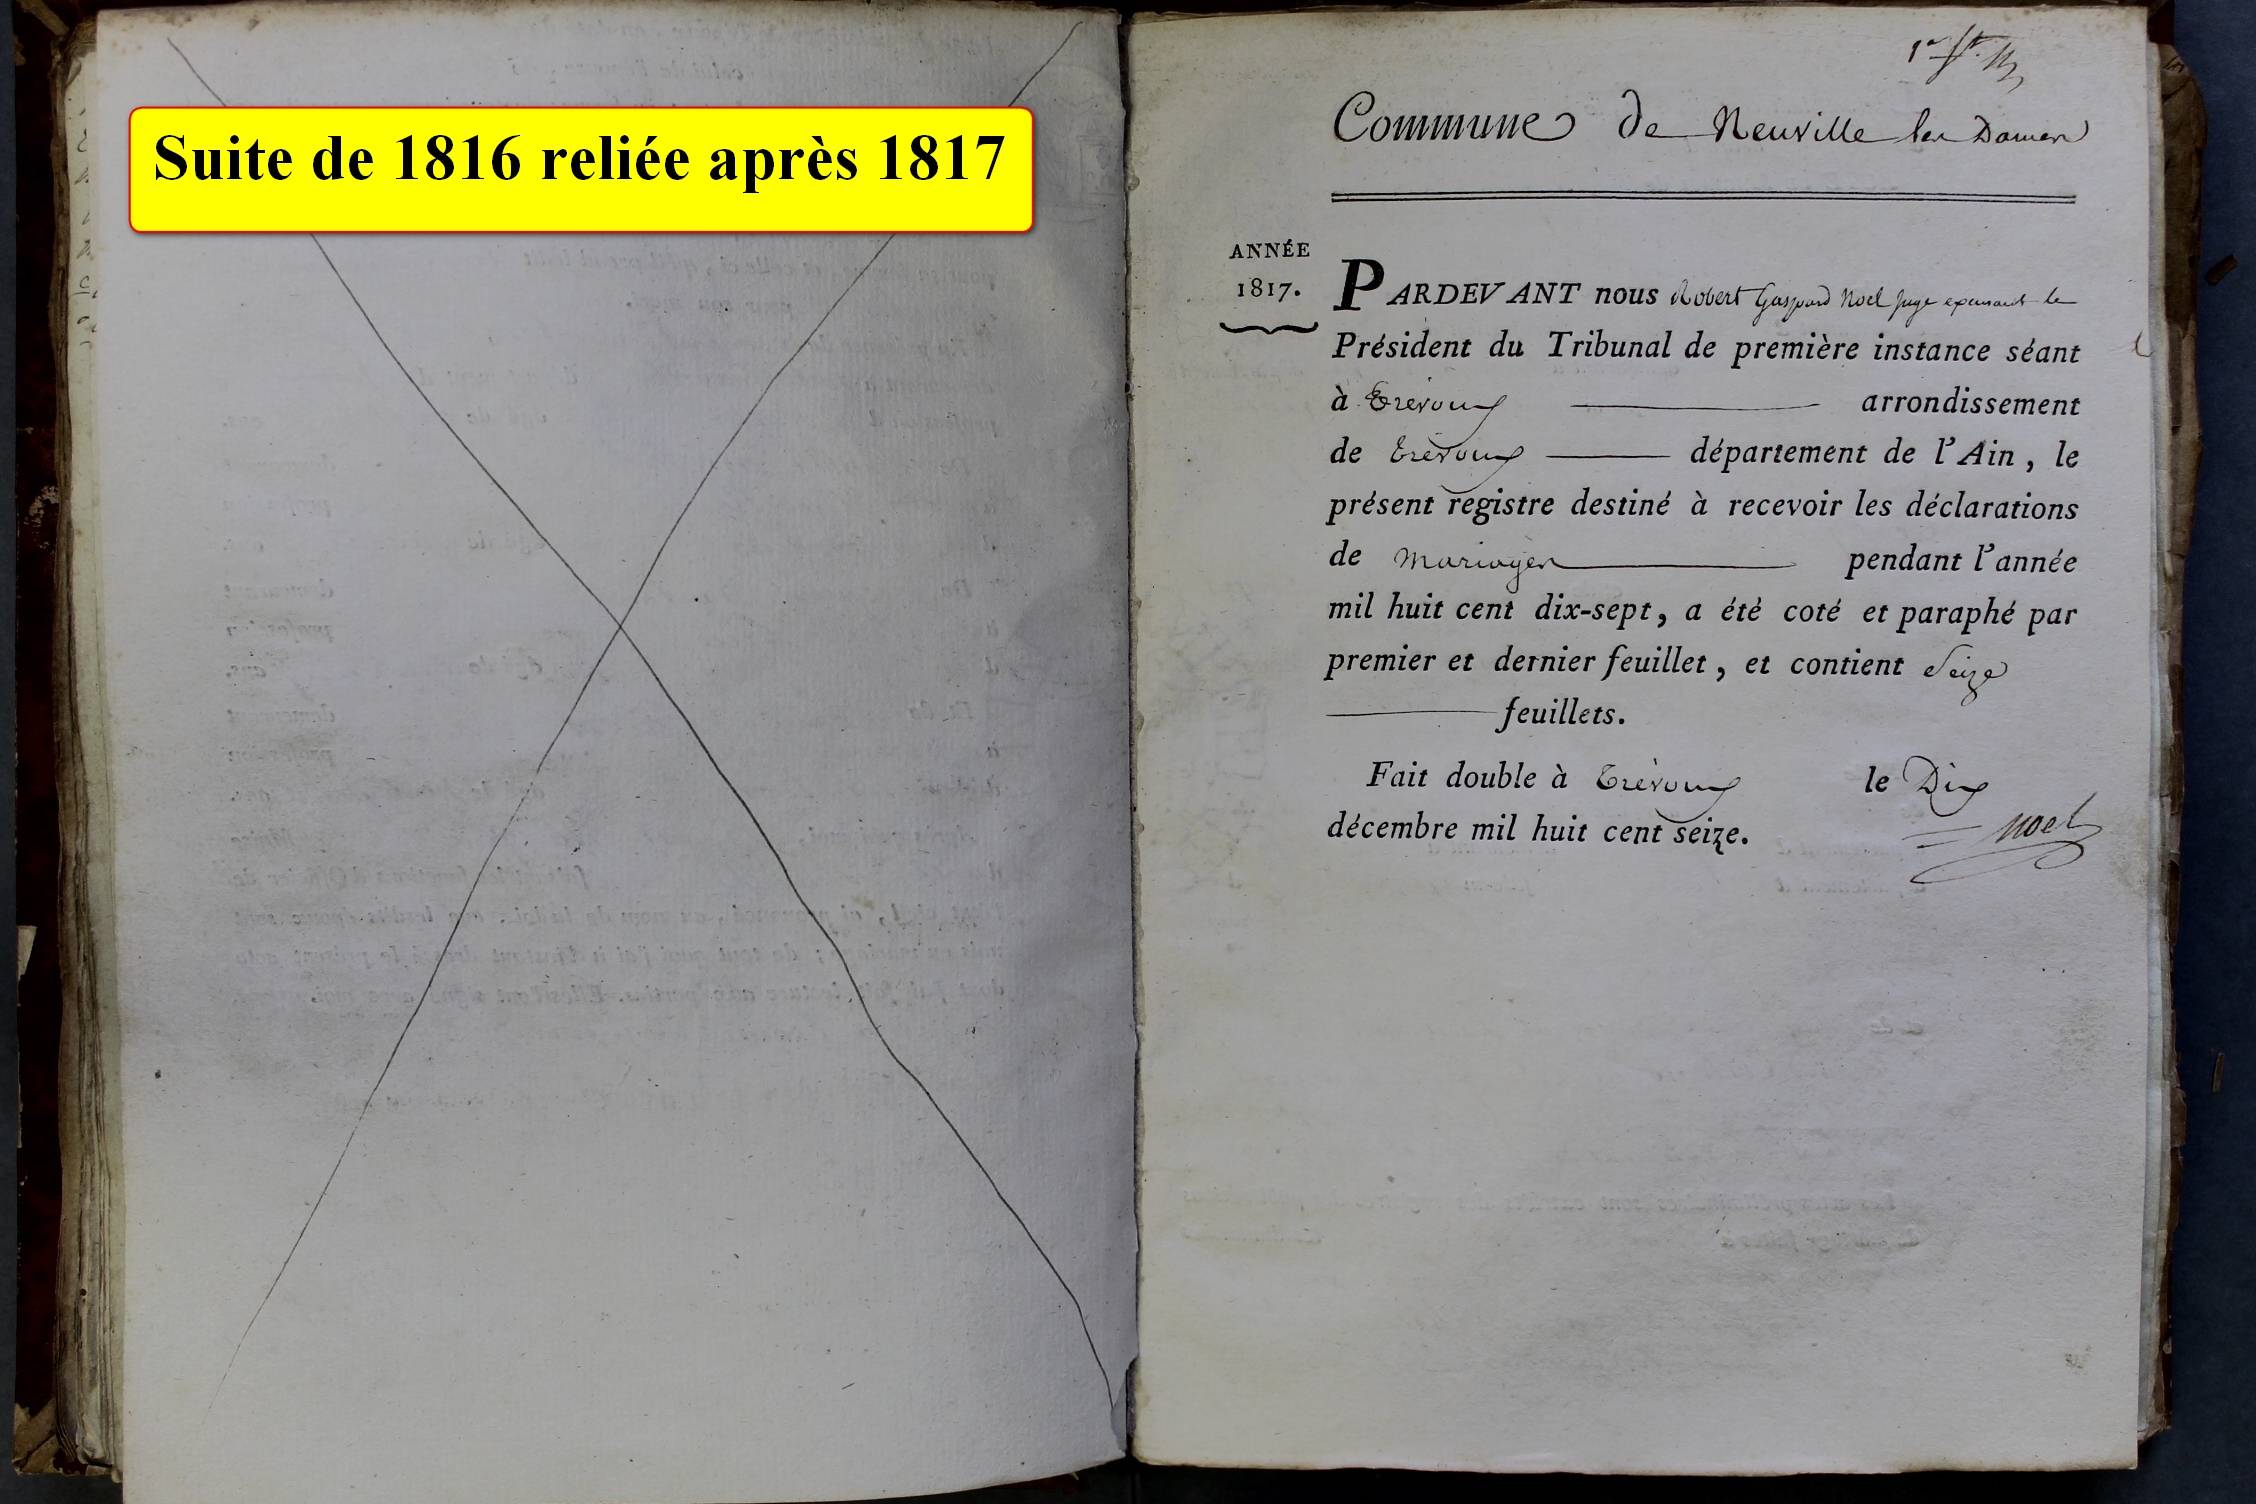 Suite de 1816 reliée après 1817
1er ft.
Commune de Neuville les Dames
ANNÉE
1817.
PARDEVANT nous Robert Gaspard Noel juge exerçant le
Président du Tribunal de première instance séant
à Trévoux arrondissement
de Trévoux département de l'Ain, le
présent registre destiné à recevoir les déclarations
de mariages pendant l'année
mil huit cent dix-sept, a été coté et paraphé par
premier et dernier feuillet, et contient Seize
feuillets.
Fait double à Trévoux le Dix
décembre mil huit cent seize.
Noel